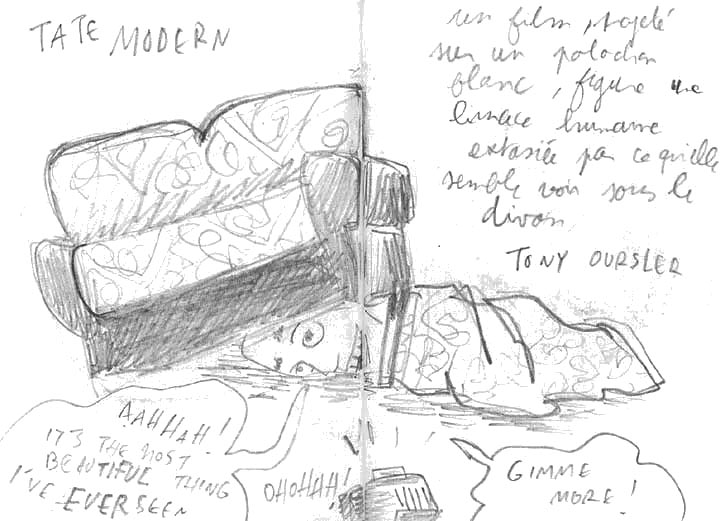 TATE MODERN
un film, projeté
sur un polochon
blanc, figure une
limace humaine
extasiée par ce qu'elle
semble voir sous le
divan
TONY OURSLER
AAHHAH!
IT'S THE MOST
BEAUTIFUL THING
I'VE EVER SEEN
OHOHHH!
GIMME
MORE!